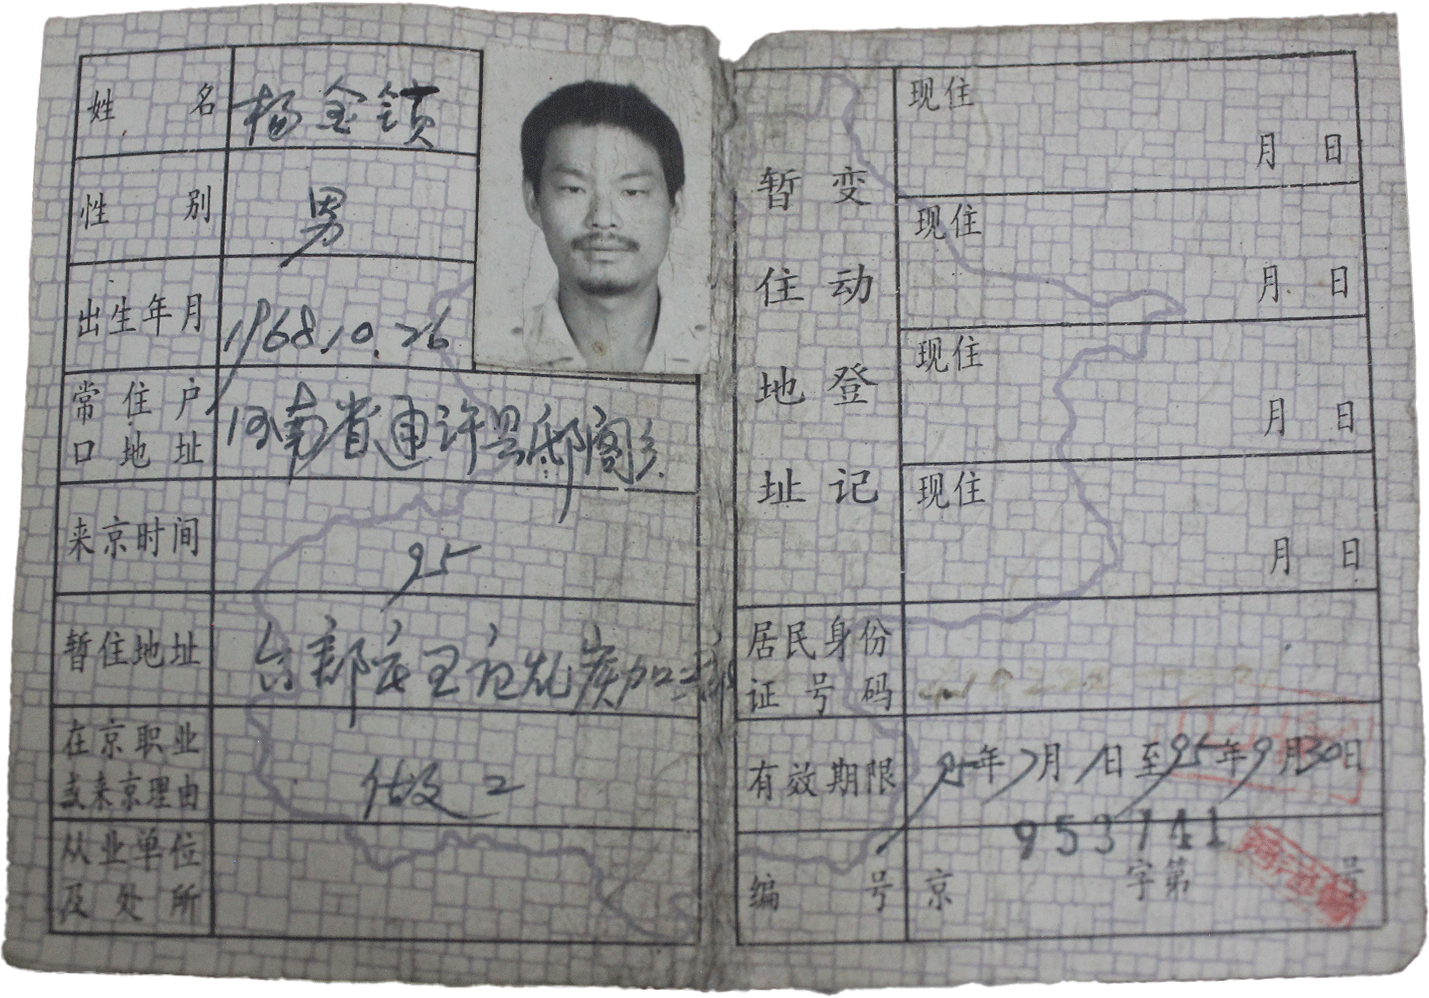 姓名 杨金锁
性别 男
出生年月 1968.10.26
常住户
口地址 河南省通许县邸阁乡
来京时间 95
暂住地址
在京职业
或来京理由 做工
从业单位
及处所
暂住地址
变动登记
现住
月 日
现住
月 日
现住
月 日
现住
月 日
居民身份
证号码
有效期限 95年7月1日至95年9月30日
953741
编号 京 字第 号